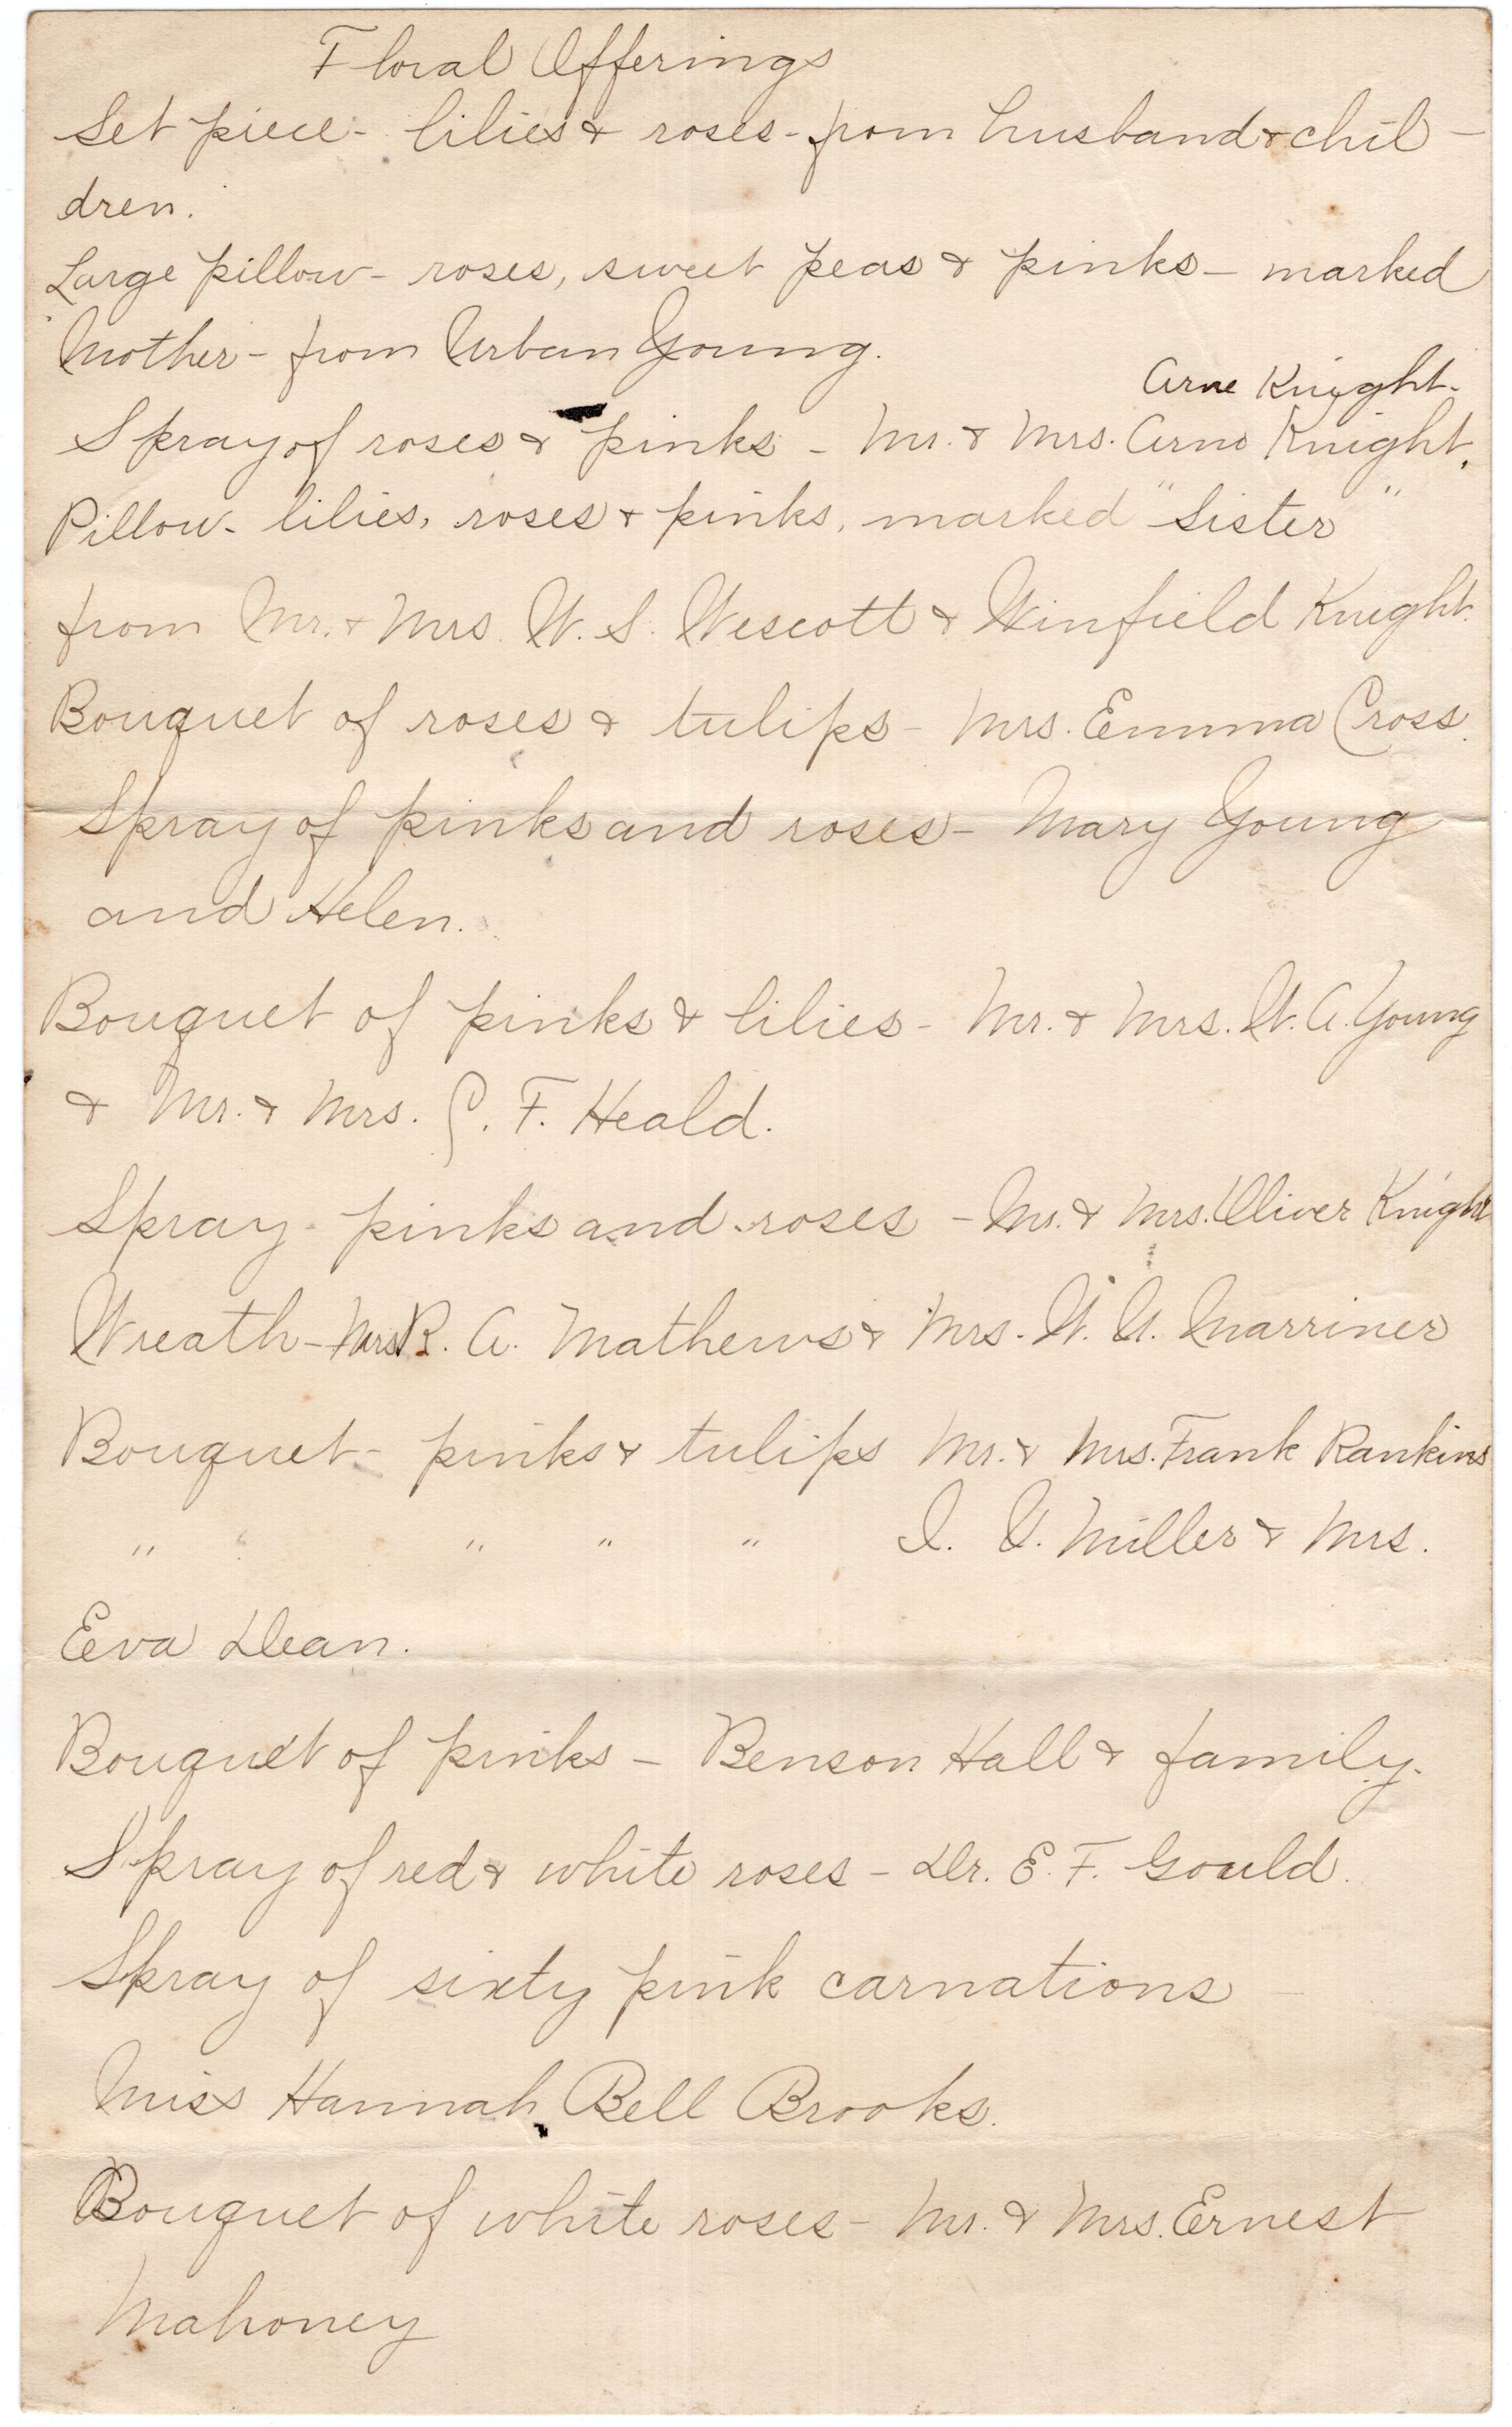 Floral Offerings
Set piece - lilies & roses - from husband & chil-
dren.
Large pillow - roses, sweet peas & pinks - marked
Mother - from Urban Young.
Arne Knight.
Spray of roses & pinks - Mr. & Mrs. Arne Knight.
Pillow - lilies, roses & pinks, marked "Sister"
from Mr. & Mrs. W. S. Wescott & Winfield Knight.
Bouquet of roses & tulips - Mrs. Emma Cross.
Spray of pinks and roses - Mary Young
and Helen.
Bouquet of pinks & lilies - Mr. & Mrs. W. A. Young
& Mr. & Mrs. F. Heald.
Spray - pinks and roses - Mr. & Mrs. Oliver Knight
Wreath - Mrs R. A. Mathews & Mrs. W. Marriner
Bouquet - pinks & tulips Mr. & Mrs. Frank Rankins
" " " " Miller & Mrs.
Eva Dean.
Bouquet of pinks - Benson Hall & family.
Spray of red & white roses - Dr. E. F. Gould.
Spray of sixty pink carnations -
Miss Hannah Bell Brooks.
Bouquet of white roses - Mr. & Mrs. Ernest
Mahoney